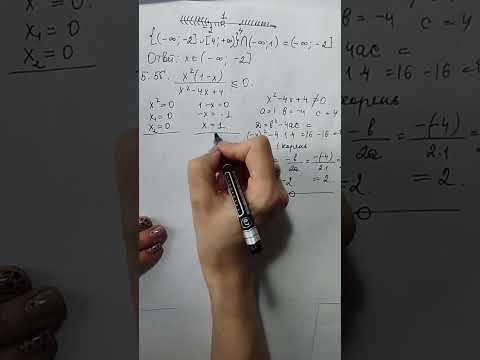 1
-2 4
{(-∞; -2] ∪ [4; +∞)} ∩ (-∞; 1) = (-∞; -2]
Ответ: x ∈ (-∞; -2]
5.5б. x²(1-x) / x²-4x+4 ≤ 0.
x² = 0
x₁ = 0
x₂ = 0
1-x = 0
-x = -1
x = 1
x²-4x+4 ≠ 0.
a = 1 в = -4 c = 4
D = в²-4ac =
(-4)²-4·1·4 = 16-16 = 0
1 корень
= -в/2a = -(-4)/2·1
= 2
в = -4 c = 4
4ac =
·4 = 16-16 =
корень
-в/2a = -(-4)/2·1
2. = 2.